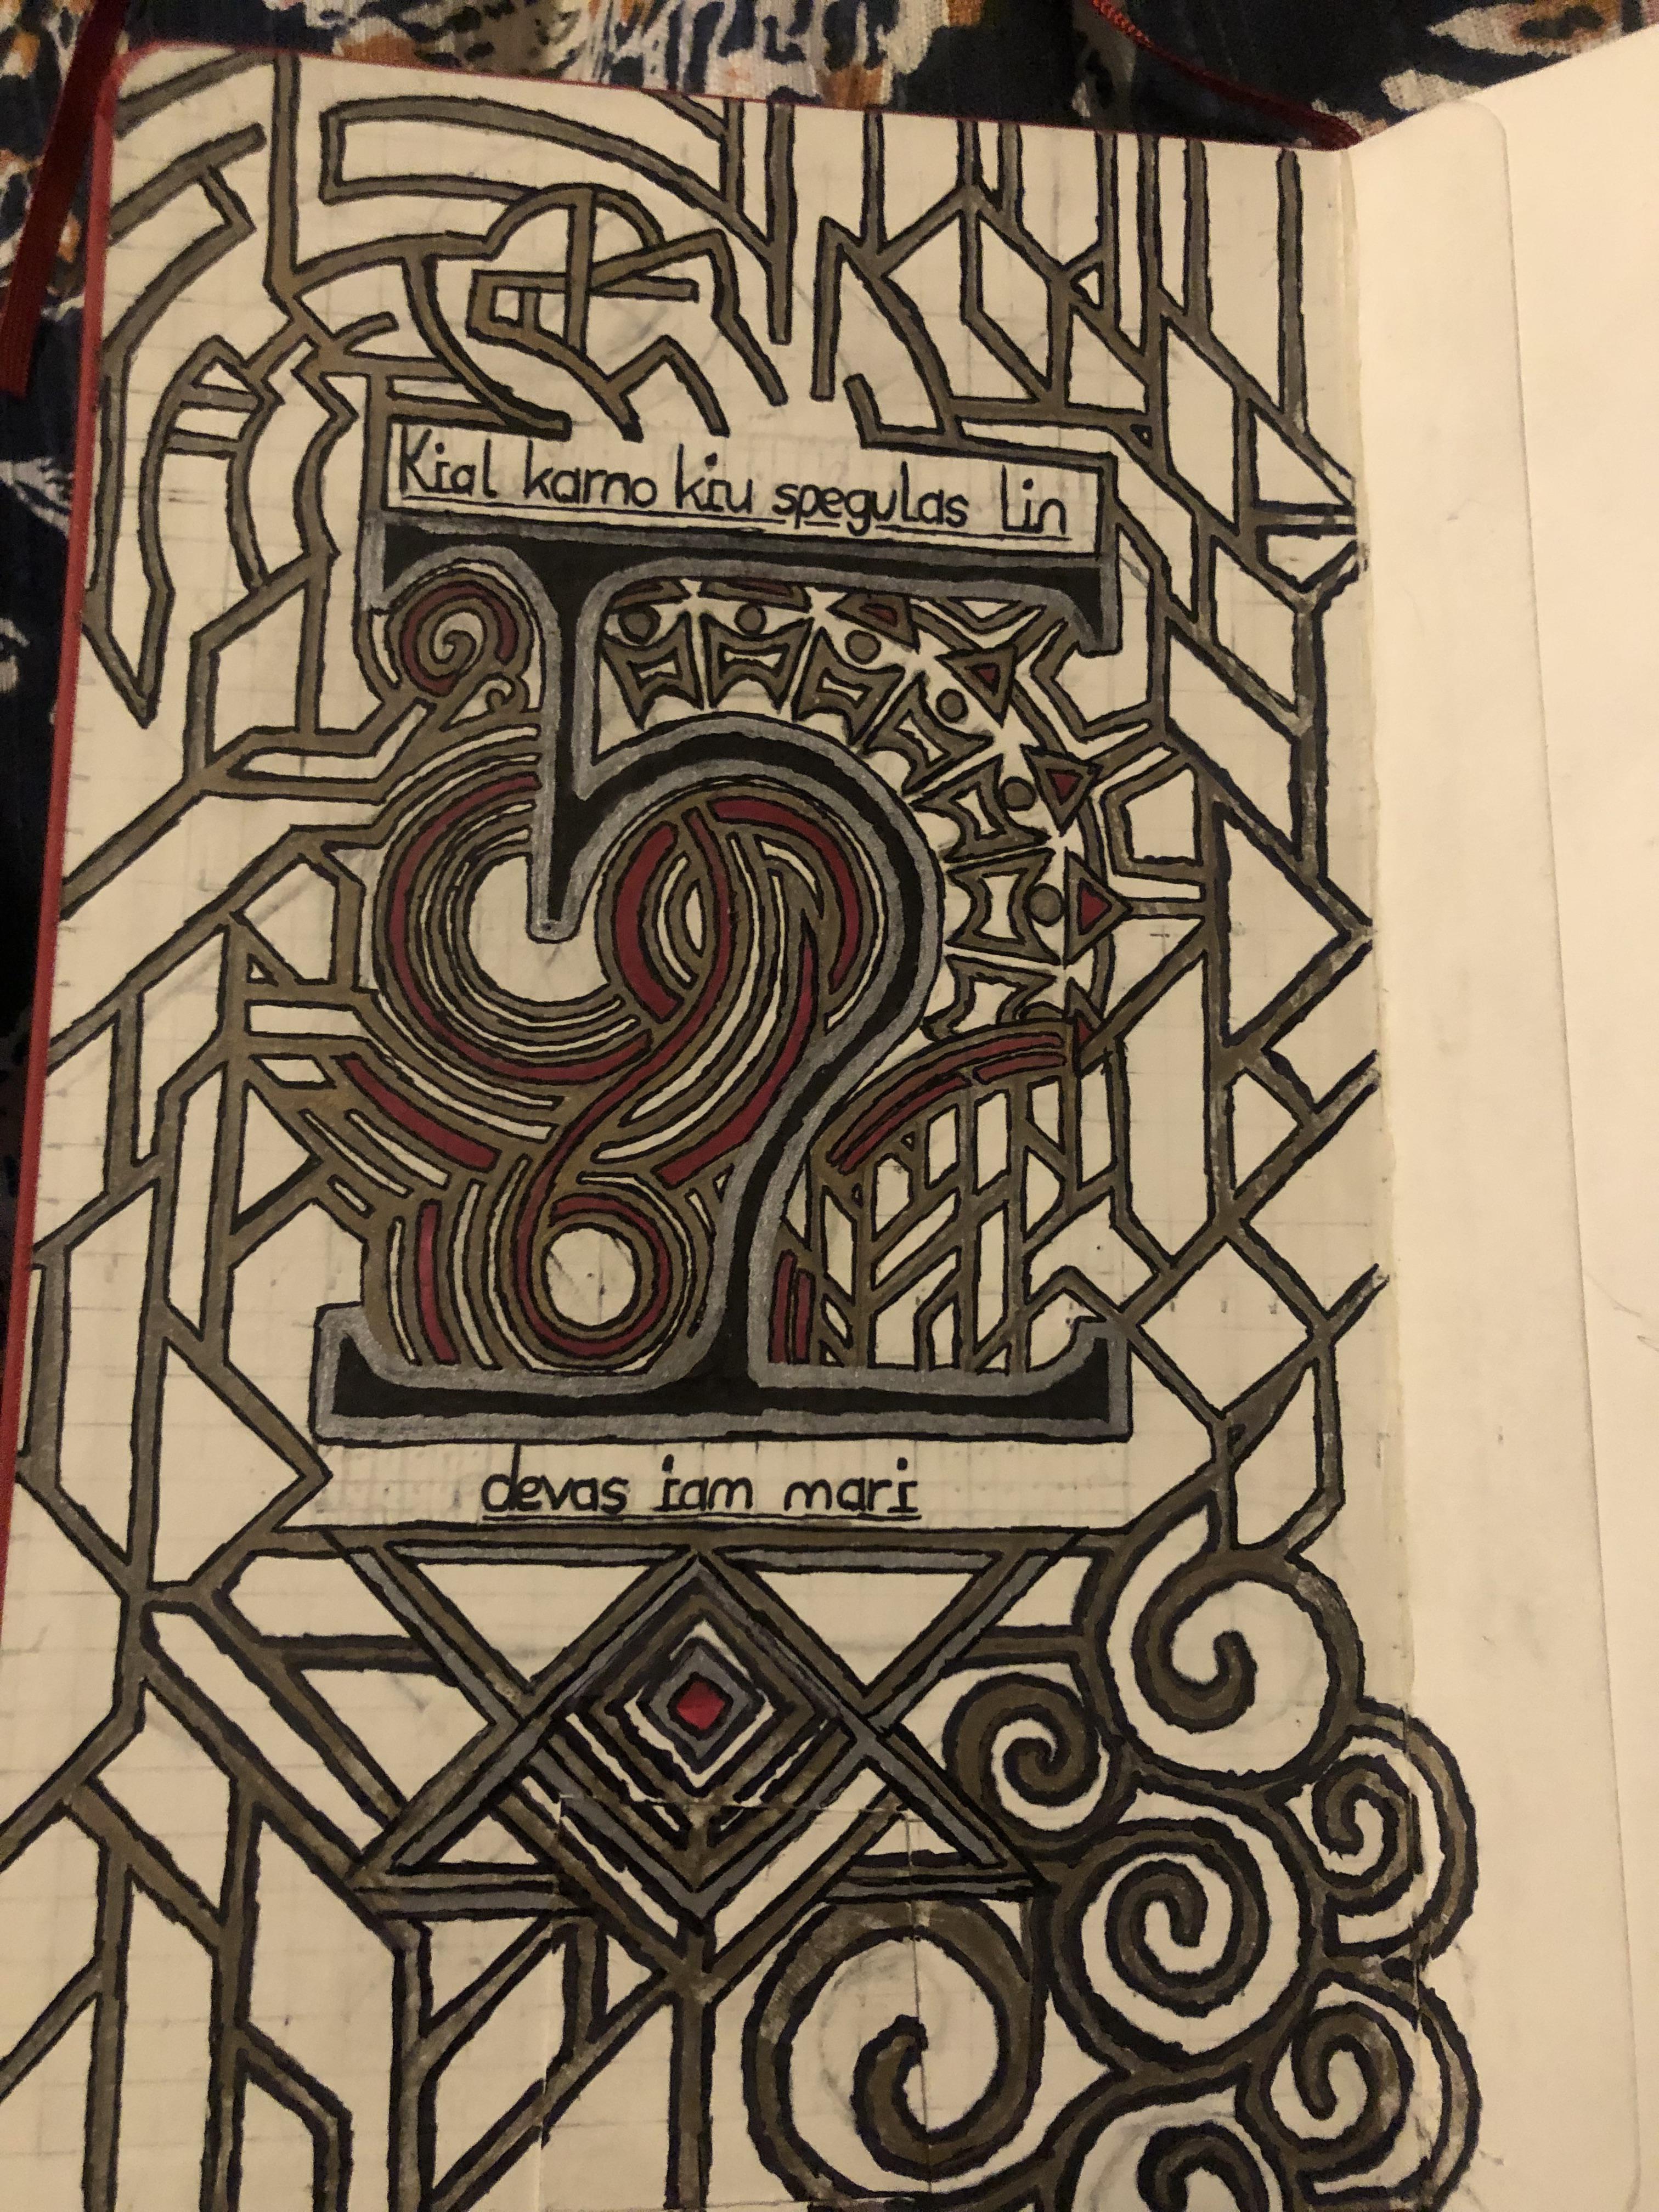 Kial karno kiu spegulas lin
devas iam mari